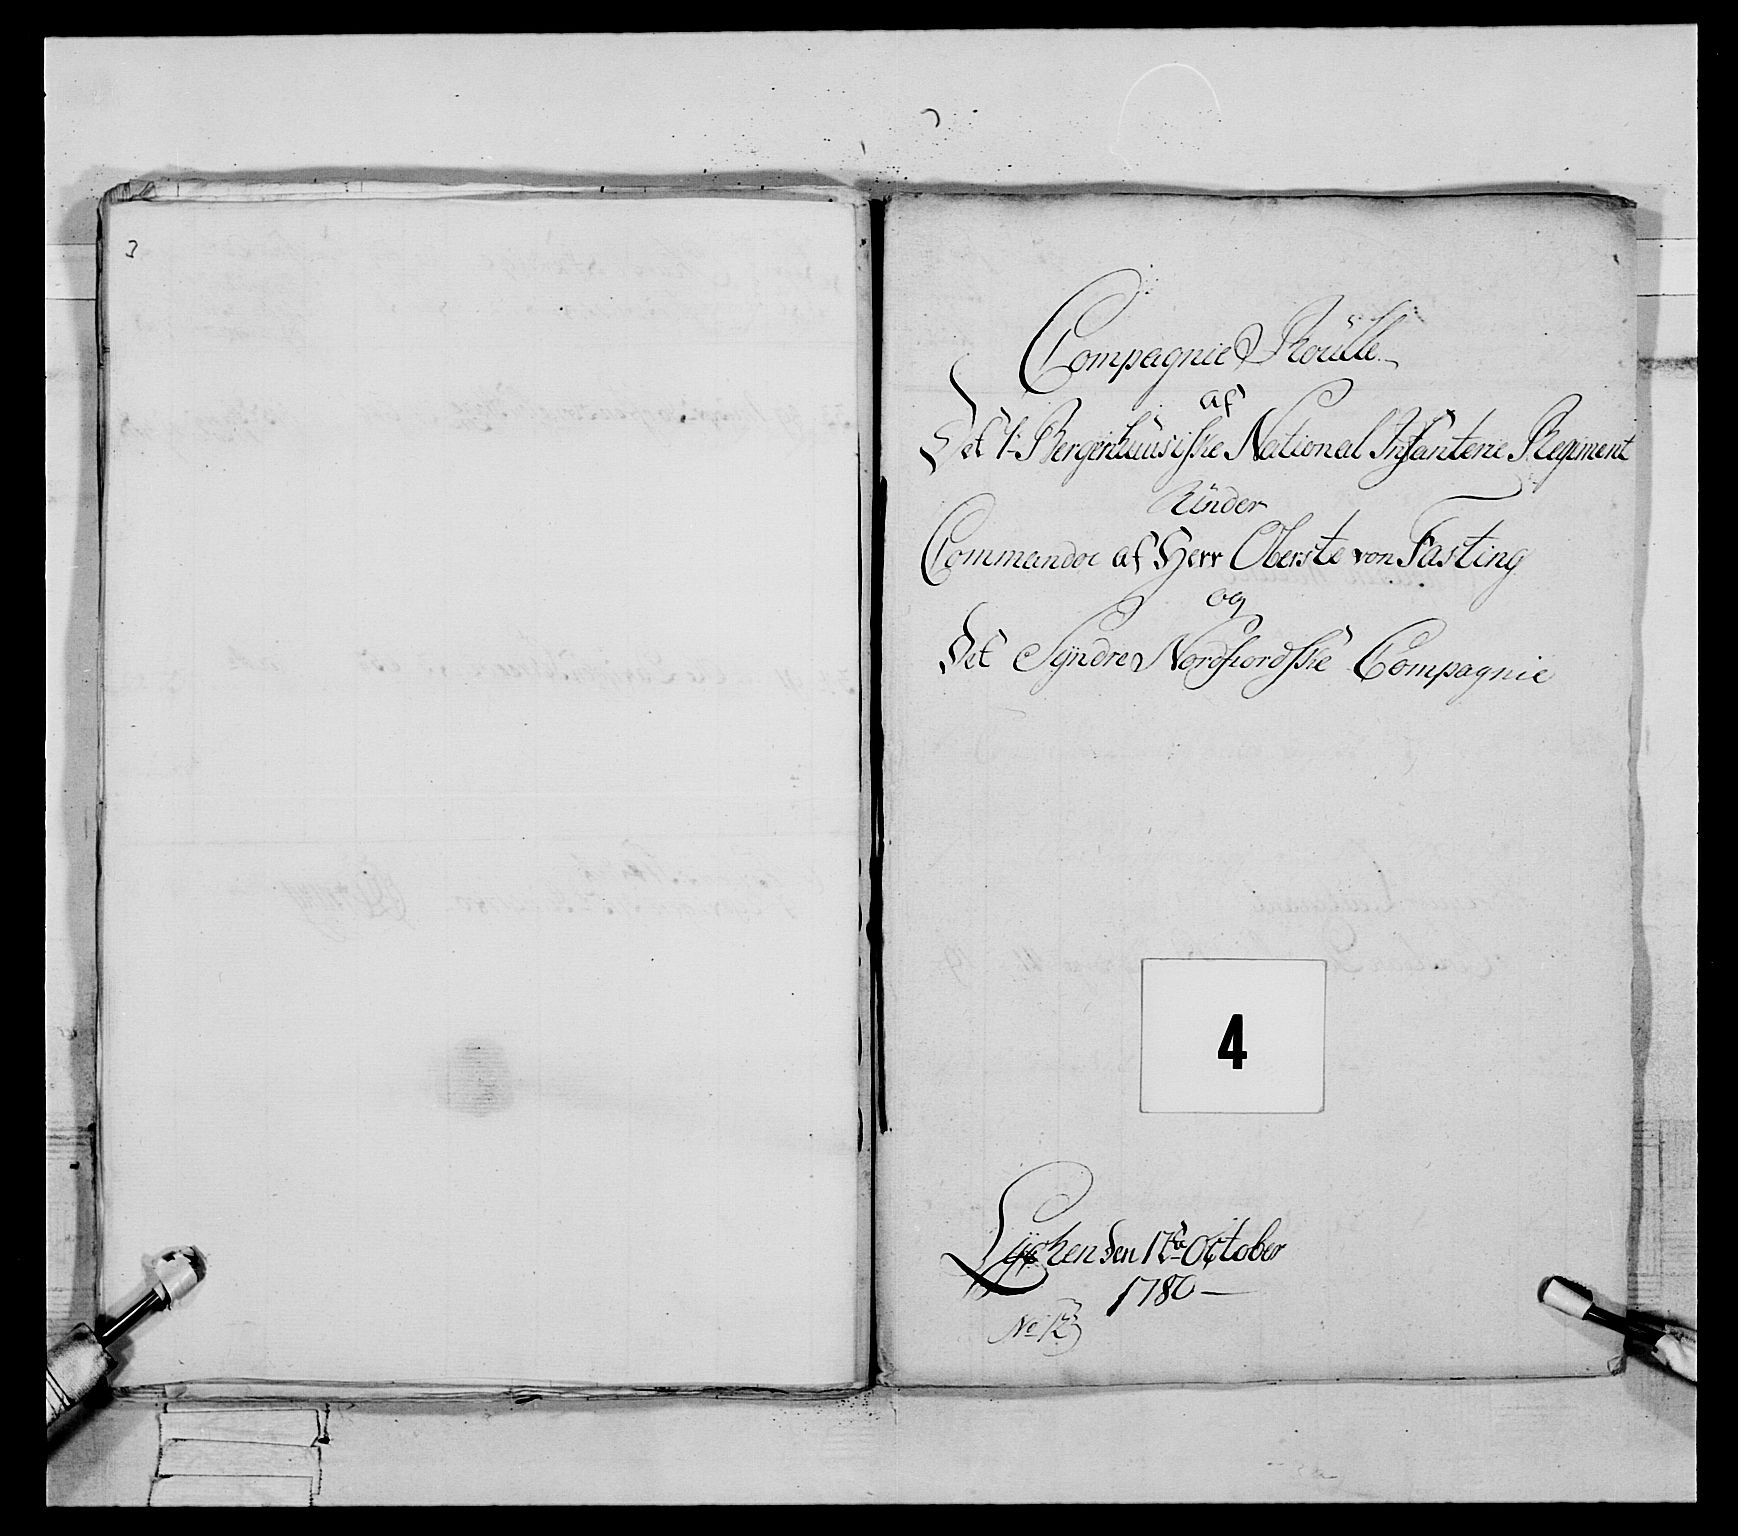 3
Compagnie Roülle
af
Det 1ᵗᵉ Bergenhuusiske National Infanterie Regiment
Ünder
Commandoe af Herr Oberste von Fasting
og
Det Syndre Nordfiordske Compagnie
4
den 17ᵈᵉ October
1780
No 12